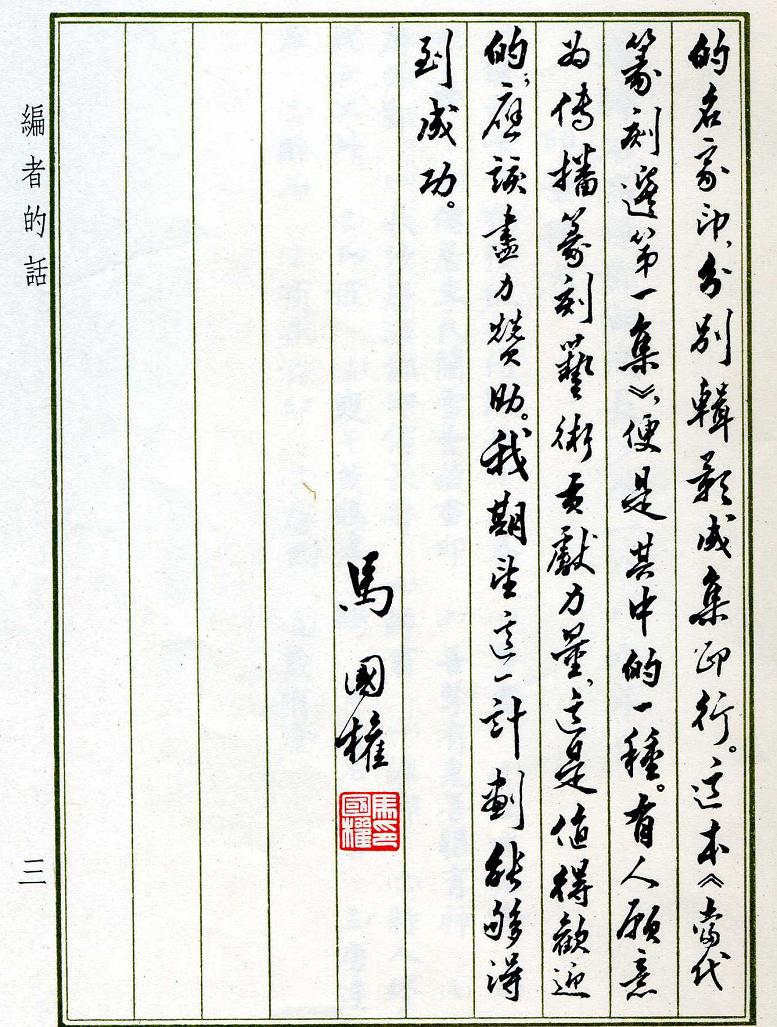 的名家印，分別輯影成集印行。這本《當代
篆刻選第一集》，便是其中的一種。有人願意
为傳播篆刻藝術貢獻力量，這是值得歡迎
的；應該盡力贊助。我期望這一計劃能够得
到成功。
馬國權
馬國權印
編者的話
三